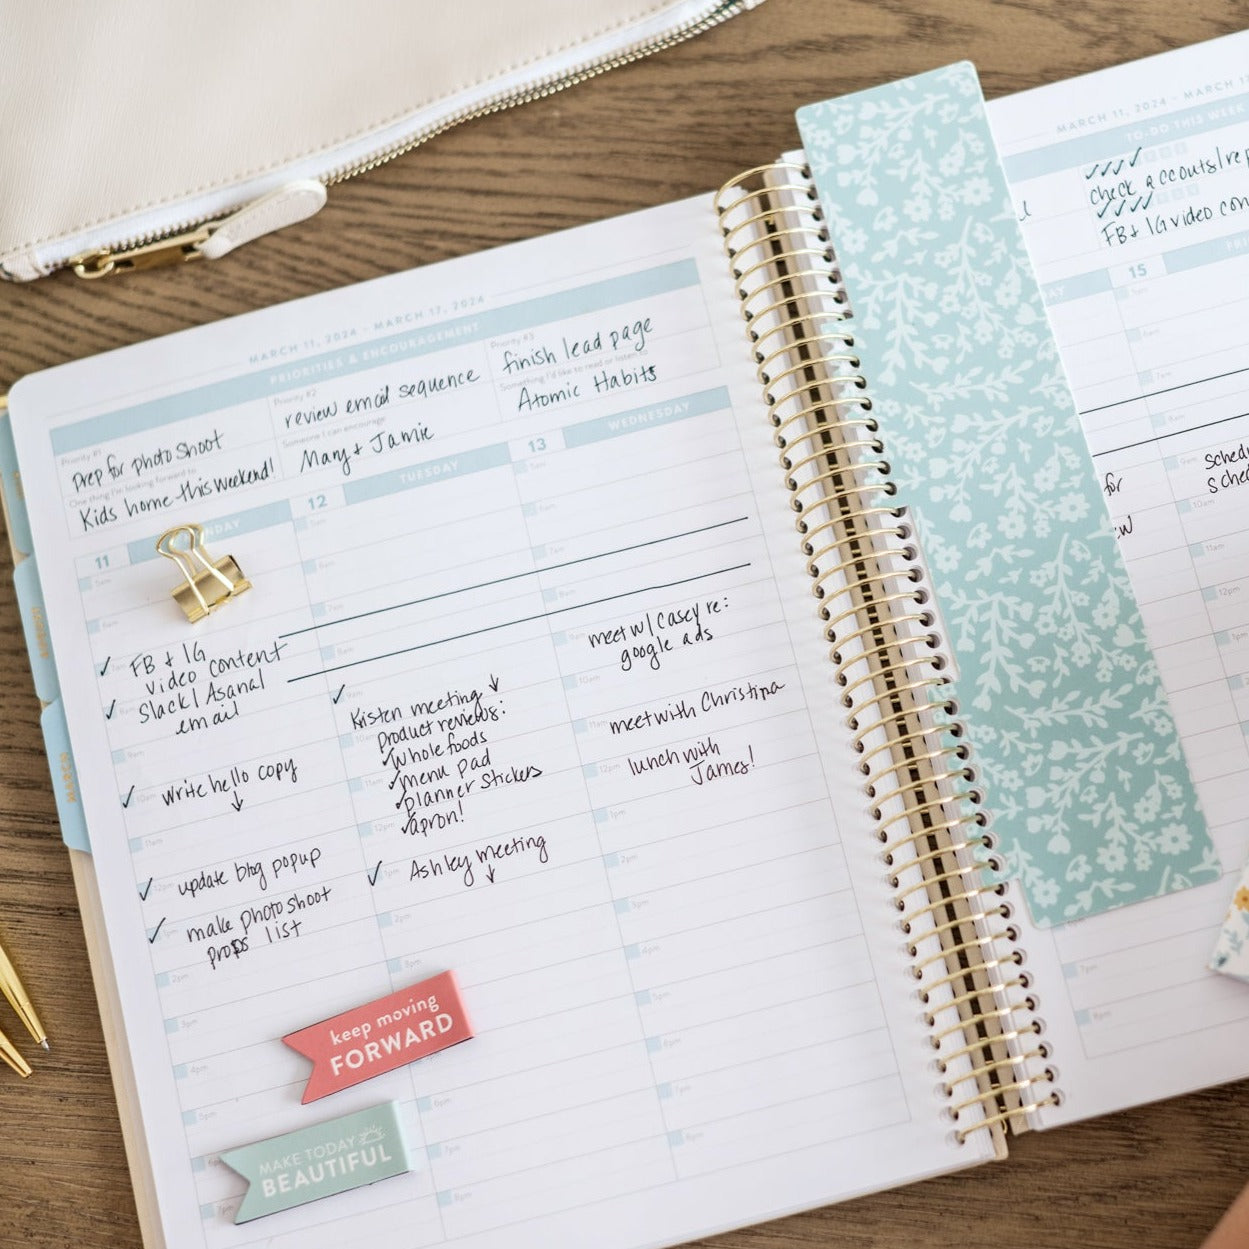 MARCH 11, 2024 - MARCH 17, 2024
PRIORITIES & ENCOURAGEMENT
Priority #1
Prep for photo shoot
One thing I'm looking forward to
Kids home this weekend!
Priority #2
review email sequence
Someone I can encourage
Mary + Jamie
Priority #3
finish lead page
Something I'd like to read or listen to
Atomic Habits
11
12 TUESDAY
13 WEDNESDAY
FB + IG
video content
Slack | Asana |
email
Write hello copy
update blog popup
make photo shoot
props list
Kristen meeting
product reviews:
Whole foods
menu pad
planner stickers
apron!
Ashley meeting
meet w/ Casey re:
google ads
meet with Christina
lunch with
James!
5am
6am
7am
8am
9am
10am
11am
12pm
1pm
2pm
3pm
4pm
5pm
6pm
7pm
8pm
keep moving
FORWARD
MAKE TODAY
BEAUTIFUL
MARCH 11, 2024 - MARCH 1
TO-DO THIS WEEK
check accouts/rep
FB + IG video con
15
for
Sched
Sched
10am
11am
12pm
7pm
8pm